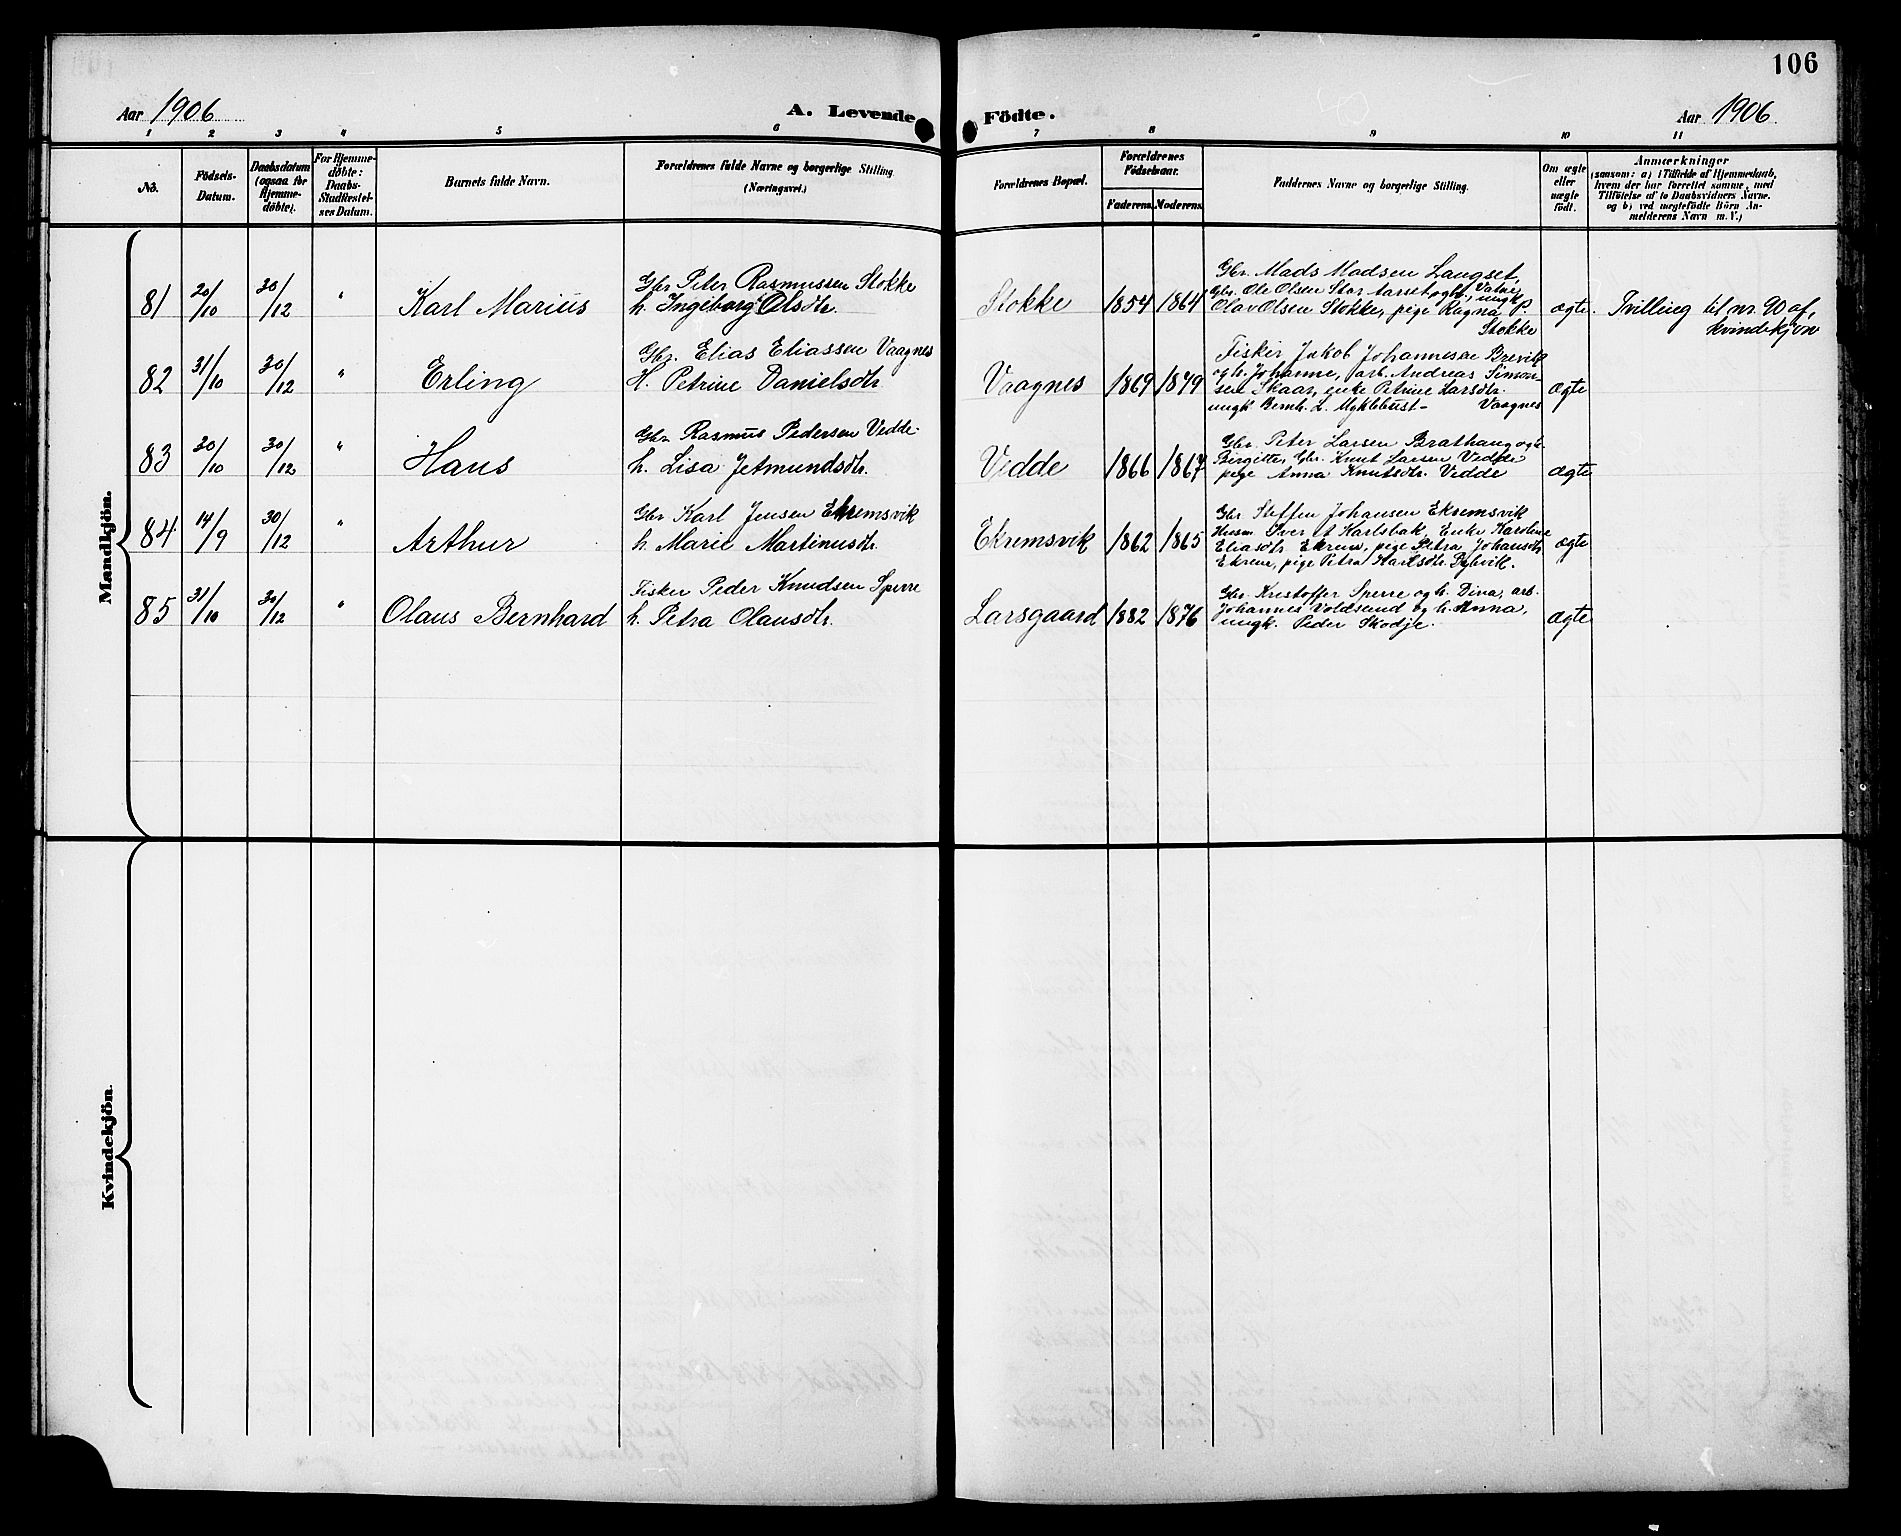 106
Aar 1906
A. Levende
Födte.
Aar 1906.
1 2 3 4 5 6 7 8 9 10 11
No.
Födsels-
Datum.
Daabsdatum
(ogsaa for
Hjemme-
døbte).
For Hjemme-
døbte:
Daabs-
Stadfæstel-
ses Datum.
Barnets fulde Navn.
Forældrenes fulde Navne og borgerlige Stilling
(Næringsvei.)
Forældrenes Bopæl.
Forældrenes
Födselsaar.
Faderens.
Moderens.
Faddernes Navne og borgerlige Stilling.
Om ægte
eller
uægte
født.
Anmærkninger
(saasom: a) i Tilfælde af Hjemmedaab,
hvem der har forrettet samme, med
Tilföielse af to Daabsvidners Navne.
og b) ved uægtefødte Börn An-
melderens Navn m. V.)
Mandkjön.
81 20/10 30/12 " Karl Marius
Gbr Peter Rasmussen Stokke
h. Ingeborg Olsdtr.
Stokke 1854 1864
Gbr. Mads Madsen Langset,
Gbr. Ole Olsen Stor Aarset og h., Vatne, ungk.
Olav Olsen Stokke, pige Ragna P.
Stokke
ægte
Tvilling til nr. 90 af
kvindekjøn
82 31/10 30/12 " Erling
Gbr. Elias Eliassen Vaagnes
H. Petrine Danielsdtr.
Vaagnes 1869 1879
Fisker Jakob Johannesen Brevik
og h. Johanne, arb. Andreas Simon-
sen Skaar, enke Petrine Larsdtr.
ungk. Bernh. L. Myklebust - Vaagnes
ægte
83 20/10 30/12 " Hans
Gbr Rasmus Pedersen Vedde
h. Lisa Jetmundsdtr.
Vedde 1866 1867
Gbr. Peter Larsen Brathaug og h.
Birgitte, Gbr. Knut Larsen Vedde
pige Anna Knutsdtr. Vedde
ægte
84 14/9 30/12 " Arthur
Gbr Karl Jensen Ekremsvik
h. Marie Martinusdtr.
Ekremsvik 1862 1865
Gbr Steffen Johansen Ekremsvik
Husm Iver A Karlsbak, Enke Karoline
Eliasdtr. Ekrem, pige Petra Johansdtr
Ekrem, pige Petra Karlsdtr.
ægte
85 31/10 30/12 " Olaus Bernhard
Fisker Peder Knudsen Sperre
h. Petra Olausdtr.
Larsgaard 1882 1876
Gbr. Kristoffer Sperre og h. Dina, arb.
Johannes Voldsund og h. Anna,
ungk. Peder Skodje.
ægte
Kvindekjön.